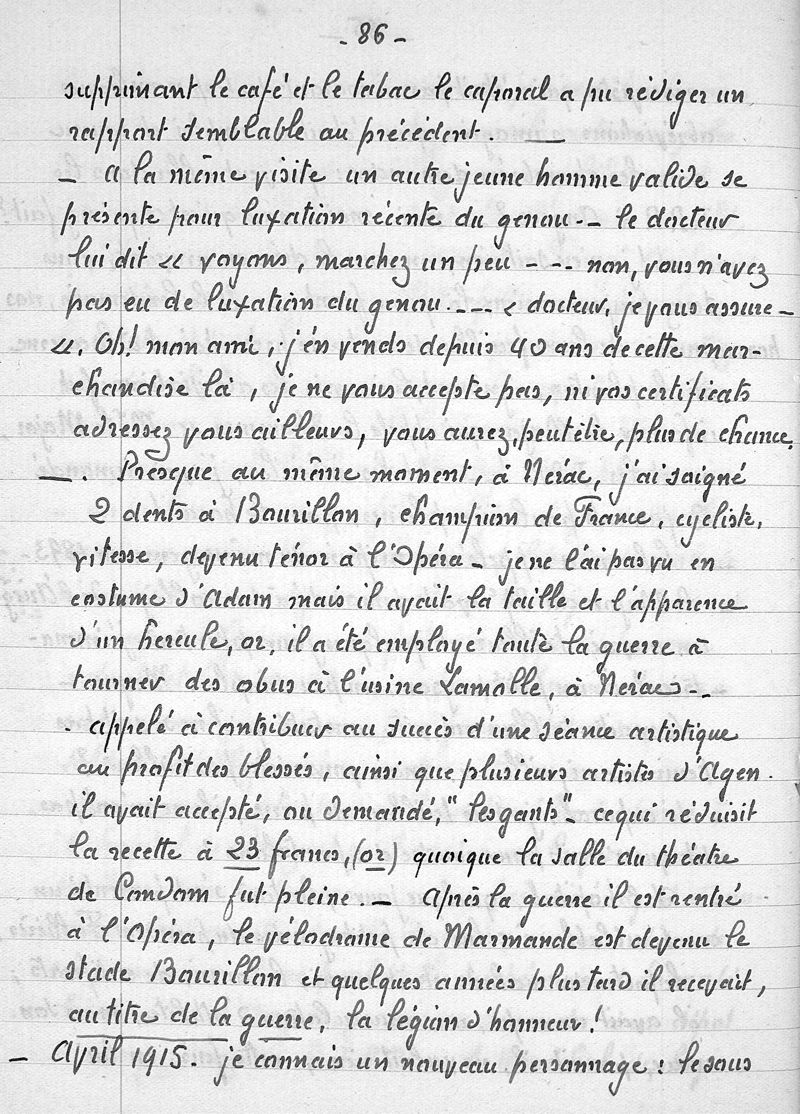 - 86 -
supprimant le café et le tabac le caporal a pu rédiger un
rapport semblable au précédent. —
— a la même visite un autre jeune homme valide se
présente pour luxation récente du genou -- le docteur
lui dit « voyons, marchez un peu --- non, vous n'avez
pas eu de luxation du genou ---- « docteur, je vous assure -
«. Oh! mon ami, j'en vends depuis 40 ans de cette mar-
chandise là, je ne vous accepte pas, ni vos certificats
adressez vous ailleurs, vous aurez, peut être, plus de chance.
—. Presque au même moment, à Nérac, j'ai soigné
2 dents à Bourillon, champion de France, cycliste,
vitesse, devenu ténor à l'Opéra - je ne l'ai pas vu en
costume d'Adam mais il avait la taille et l'apparence
d'un hercule, or, il a été employé toute la guerre à
tourner des obus à l'usine Lamolle, à Nérac --
. appelé à contribuer au succès d'une séance artistique
au profit des blessés, ainsi que plusieurs artistes d'Agen.
il avait accepté, ou demandé, "les gants" - ce qui réduisit
la recette à 23 francs, (or) quoique la salle du théatre
de Condom fut pleine. — Après la guerre il est rentré
à l'Opéra, le vélodrome de Marmande est devenu le
stade Bourillon et quelques années plus tard il recevait,
au titre de la guerre, la légion d'honneur!
— Avril 1915. je connais un nouveau personnage : le sous